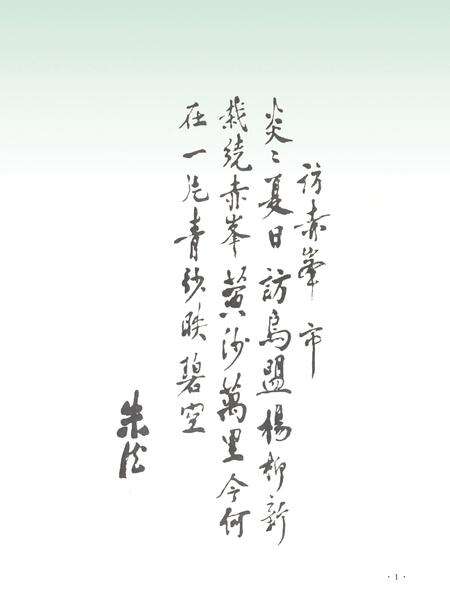 訪赤峯市
炎〻夏日訪烏盟楊柳新
栽绕赤峯黄沙萬里今何
在一片青纱映碧空
朱
· 1 ·